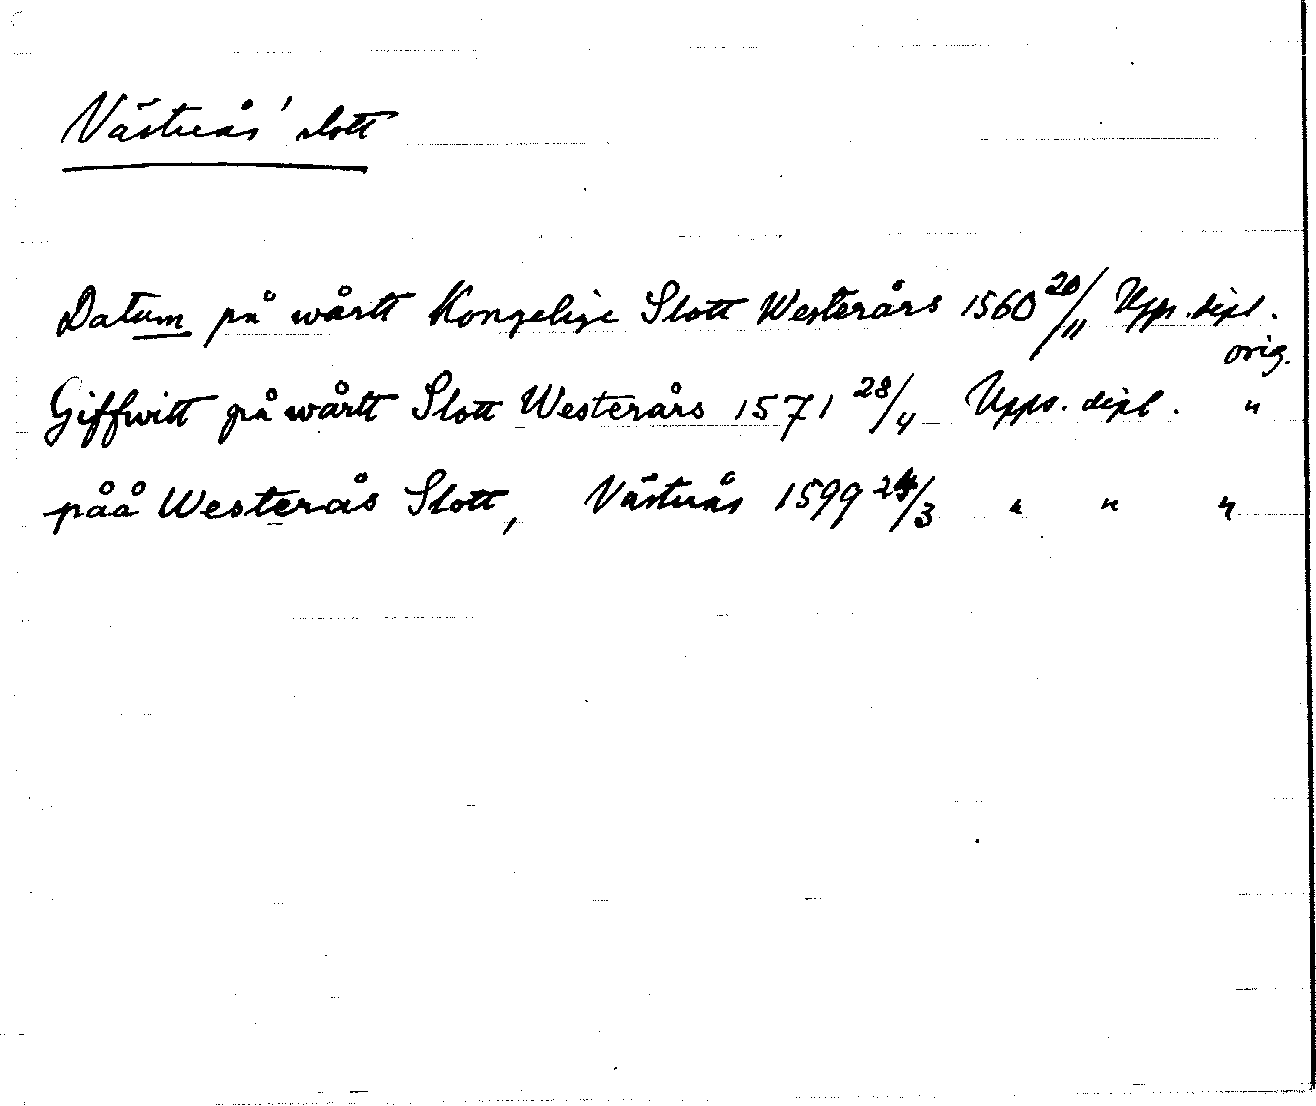 Västerås' slott
Datum på wårtt Kongelige Slott Westerårs 1560 20/11 Upps. dipl.
orig.
Giffwitt på wårtt Slott Westerårs 1571 28/4 Upps. dipl. "
påå Westerås Slott, Västerås 1599 24/3 " " "